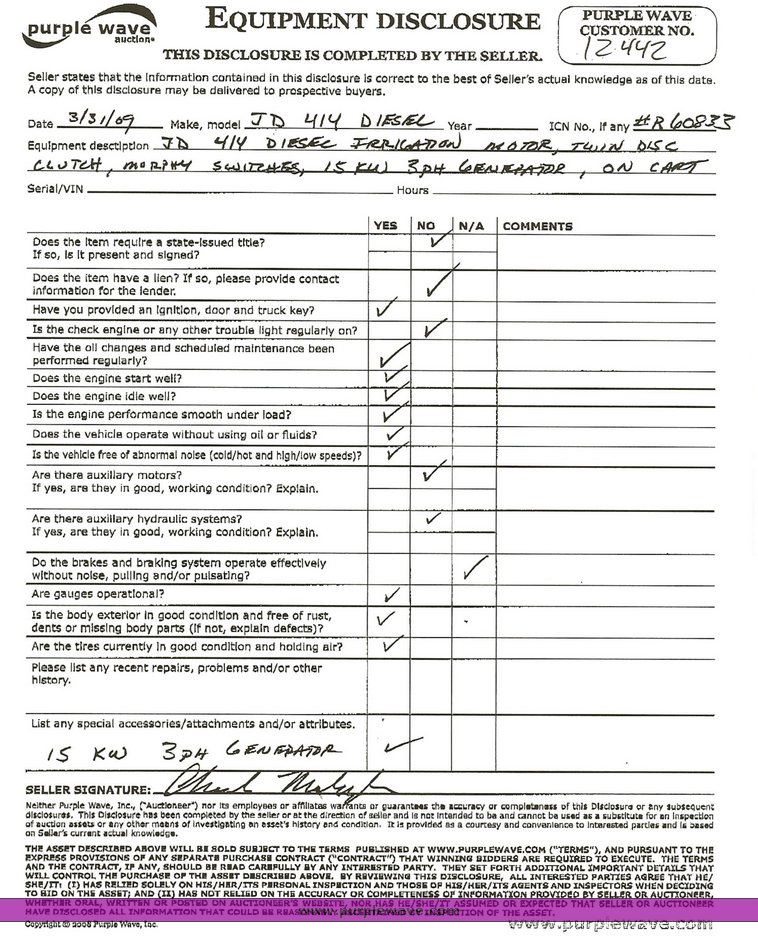 purple wave
auction®
EQUIPMENT DISCLOSURE
PURPLE WAVE
CUSTOMER NO.
12442
THIS DISCLOSURE IS COMPLETED BY THE SELLER.
Seller states that the information contained in this disclosure is correct to the best of Seller's actual knowledge as of this date.
A copy of this disclosure may be delivered to prospective buyers.
Date 3/31/09 Make, model JD 414 DIESEL Year ICN No., if any #R60833
Equipment desctiption JD 414 DIESEL IRRIGATION MOTOR, TWIN DISC
CLUTCH, MORPHY SWITCHES, 15 KW 3PH GENERATOR, ON CART
Serial/VIN Hours
YES NO N/A COMMENTS
Does the item require a state-issued title?
If so, is it present and signed?
Does the item have a lien? If so, please provide contact
information for the lender.
Have you provided an ignition, door and truck key?
Is the check engine or any other trouble light regularly on?
Have the oil changes and scheduled maintenance been
performed regularly?
Does the engine start well?
Does the engine idle well?
Is the engine performance smooth under load?
Does the vehicle operate without using oil or fluids?
Is the vehicle free of abnormal noise (cold/hot and high/low speeds)?
Are there auxiliary motors?
If yes, are they in good, working condition? Explain.
Are there auxiliary hydraulic systems?
If yes, are they in good, working condition? Explain.
Do the brakes and braking system operate effectively
without noise, pulling and/or pulsating?
Are gauges operational?
Is the body exterior in good condition and free of rust,
dents or missing body parts (if not, explain defects)?
Are the tires currently in good condition and holding air?
Please list any recent repairs, problems and/or other
history.
List any special accessories/attachments and/or attributes.
15 KW 3PH GENERATOR
SELLER SIGNATURE:
Neither Purple Wave, Inc., ("Auctioneer") nor its employees or affiliates warrants or guarantees the accuracy or completeness of this Disclosure or any subsequent
disclosures. This Disclosure has been completed by the seller or at the direction of seller and is not intended to be and cannot be used as a substitute for an inspection
of auction assets or any other means of investigating an asset's history and condition. It is provided as a courtesy and convenience to interested parties and is based
on Seller's current actual knowledge.
THE ASSET DESCRIBED ABOVE WILL BE SOLD SUBJECT TO THE TERMS PUBLISHED AT WWW.PURPLEWAVE.COM ("TERMS"), AND PURSUANT TO THE
EXPRESS PROVISIONS OF ANY SEPARATE PURCHASE CONTRACT ("CONTRACT") THAT WINNING BIDDERS ARE REQUIRED TO EXECUTE. THE TERMS
AND THE CONTRACT, IF ANY, SHOULD BE READ CAREFULLY BY ANY INTERESTED PARTY. THEY SET FORTH ADDITIONAL IMPORTANT DETAILS THAT
WILL CONTROL THE PURCHASE OF THE ASSET DESCRIBED ABOVE. BY REVIEWING THIS DISCLOSURE, ALL INTERESTED PARTIES AGREE THAT HE/
SHE/IT: (I) HAS RELIED SOLELY ON HIS/HER/ITS PERSONAL INSPECTION AND THOSE OF HIS/HER/ITS AGENTS AND INSPECTORS WHEN DECIDING
TO BID ON THE ASSET; AND (II) HAS NOT RELIED ON THE ACCURACY OR COMPLETENESS OF INFORMATION PROVIDED BY SELLER OR AUCTIONEER,
WHETHER ORAL, WRITTEN OR POSTED ON AUCTIONEER'S WEBSITE, NOR HAS HE/SHE/IT ASSUMED OR EXPECTED THAT SELLER OR AUCTIONEER
HAVE DISCLOSED ALL INFORMATION THAT COULD BE INSPECTION OF THE ASSET.
Copyright © 2008 Purple Wave, Inc.
www.purplewave.com